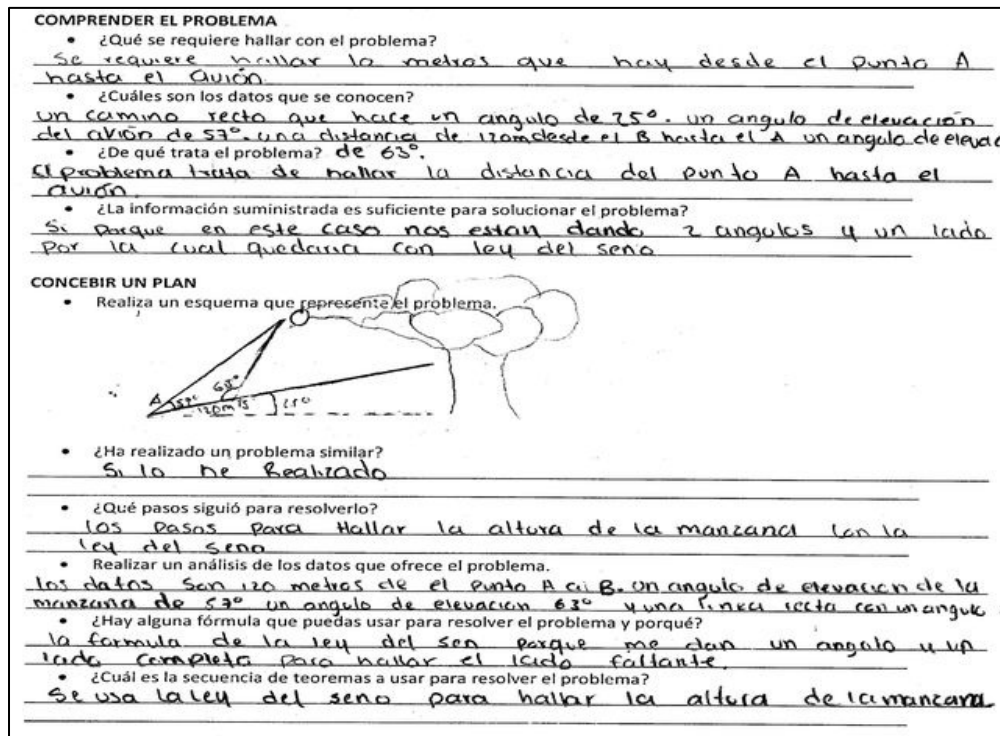 COMPRENDER EL PROBLEMA
• ¿Qué se requiere hallar con el problema?
Se requiere hallar lo metros que hay desde el punto A
hasta el avión
• ¿Cuáles son los datos que se conocen?
un camino recto que hace un angulo de 25°. un angulo de elevación
del avión de 57°. una distancia de 120m desde el B hasta el A un angulo de elevac
• ¿De qué trata el problema? de 63°.
El problema trata de hallar la distancia del punto A hasta el
avión
• ¿La información suministrada es suficiente para solucionar el problema?
Si porque en este caso nos estan dando 2 angulos y un lado
por la cual quedaria con ley del seno
CONCEBIR UN PLAN
• Realiza un esquema que represente el problema.
63°
A 57°
120m 25°
• ¿Ha realizado un problema similar?
Si lo he Realizado
• ¿Qué pasos siguió para resolverlo?
los pasos para Hallar la altura de la manzana con la
ley del seno
• Realizar un análisis de los datos que ofrece el problema.
los datos son 120 metros de el punto A al B. un angulo de elevacion de la
manzana de 57° un angulo de elevacion 63° y una linea recta con un angulo
• ¿Hay alguna fórmula que puedas usar para resolver el problema y porqué?
la formula de la ley del sen porque me dan un angulo y un
lado completo para hallar el lado faltante.
• ¿Cuál es la secuencia de teoremas a usar para resolver el problema?
Se usa la ley del seno para hallar la altura de la manzana